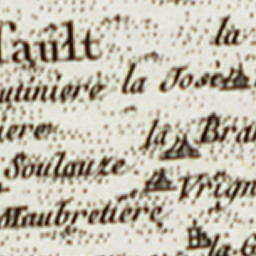 sault la
utiniere la José
iere la Bra
Soulouze Vrign
Maubretiere
la G